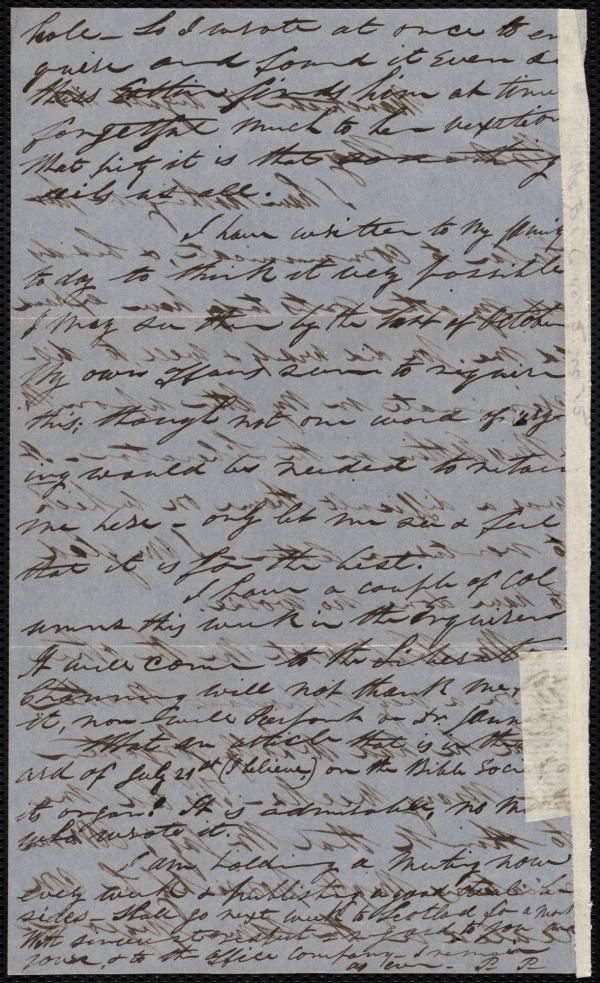 hole – So I wrote at once to en
quire and found it even so
this settin finds him at time
forgetful much to her vexation
What pity it is that something
ails us all.
I have written to my family
to day to think it very possible
I may see them by the last of October
My own affairs seem to require
this; though not one word of urg
ing would be needed to retain
me here – only let me see & feel
that it is for the best.
I have a couple of col
umns this week in the Enquirer
It will come to the Liberator
Channing will not thank me for
it, nor I will Pierpont or Dr.
What an article that is in the
ard of July 21st (I believe) on the Bible Society
its organ! It is admirable, no m
who wrote it.
I am holding a meeting now
every week & publishing a good deal be-
sides – Shall go next week to Scotland for a month
With sincerest respect & regard to you and
yours, & to the Office company – I remain
as ever – R R